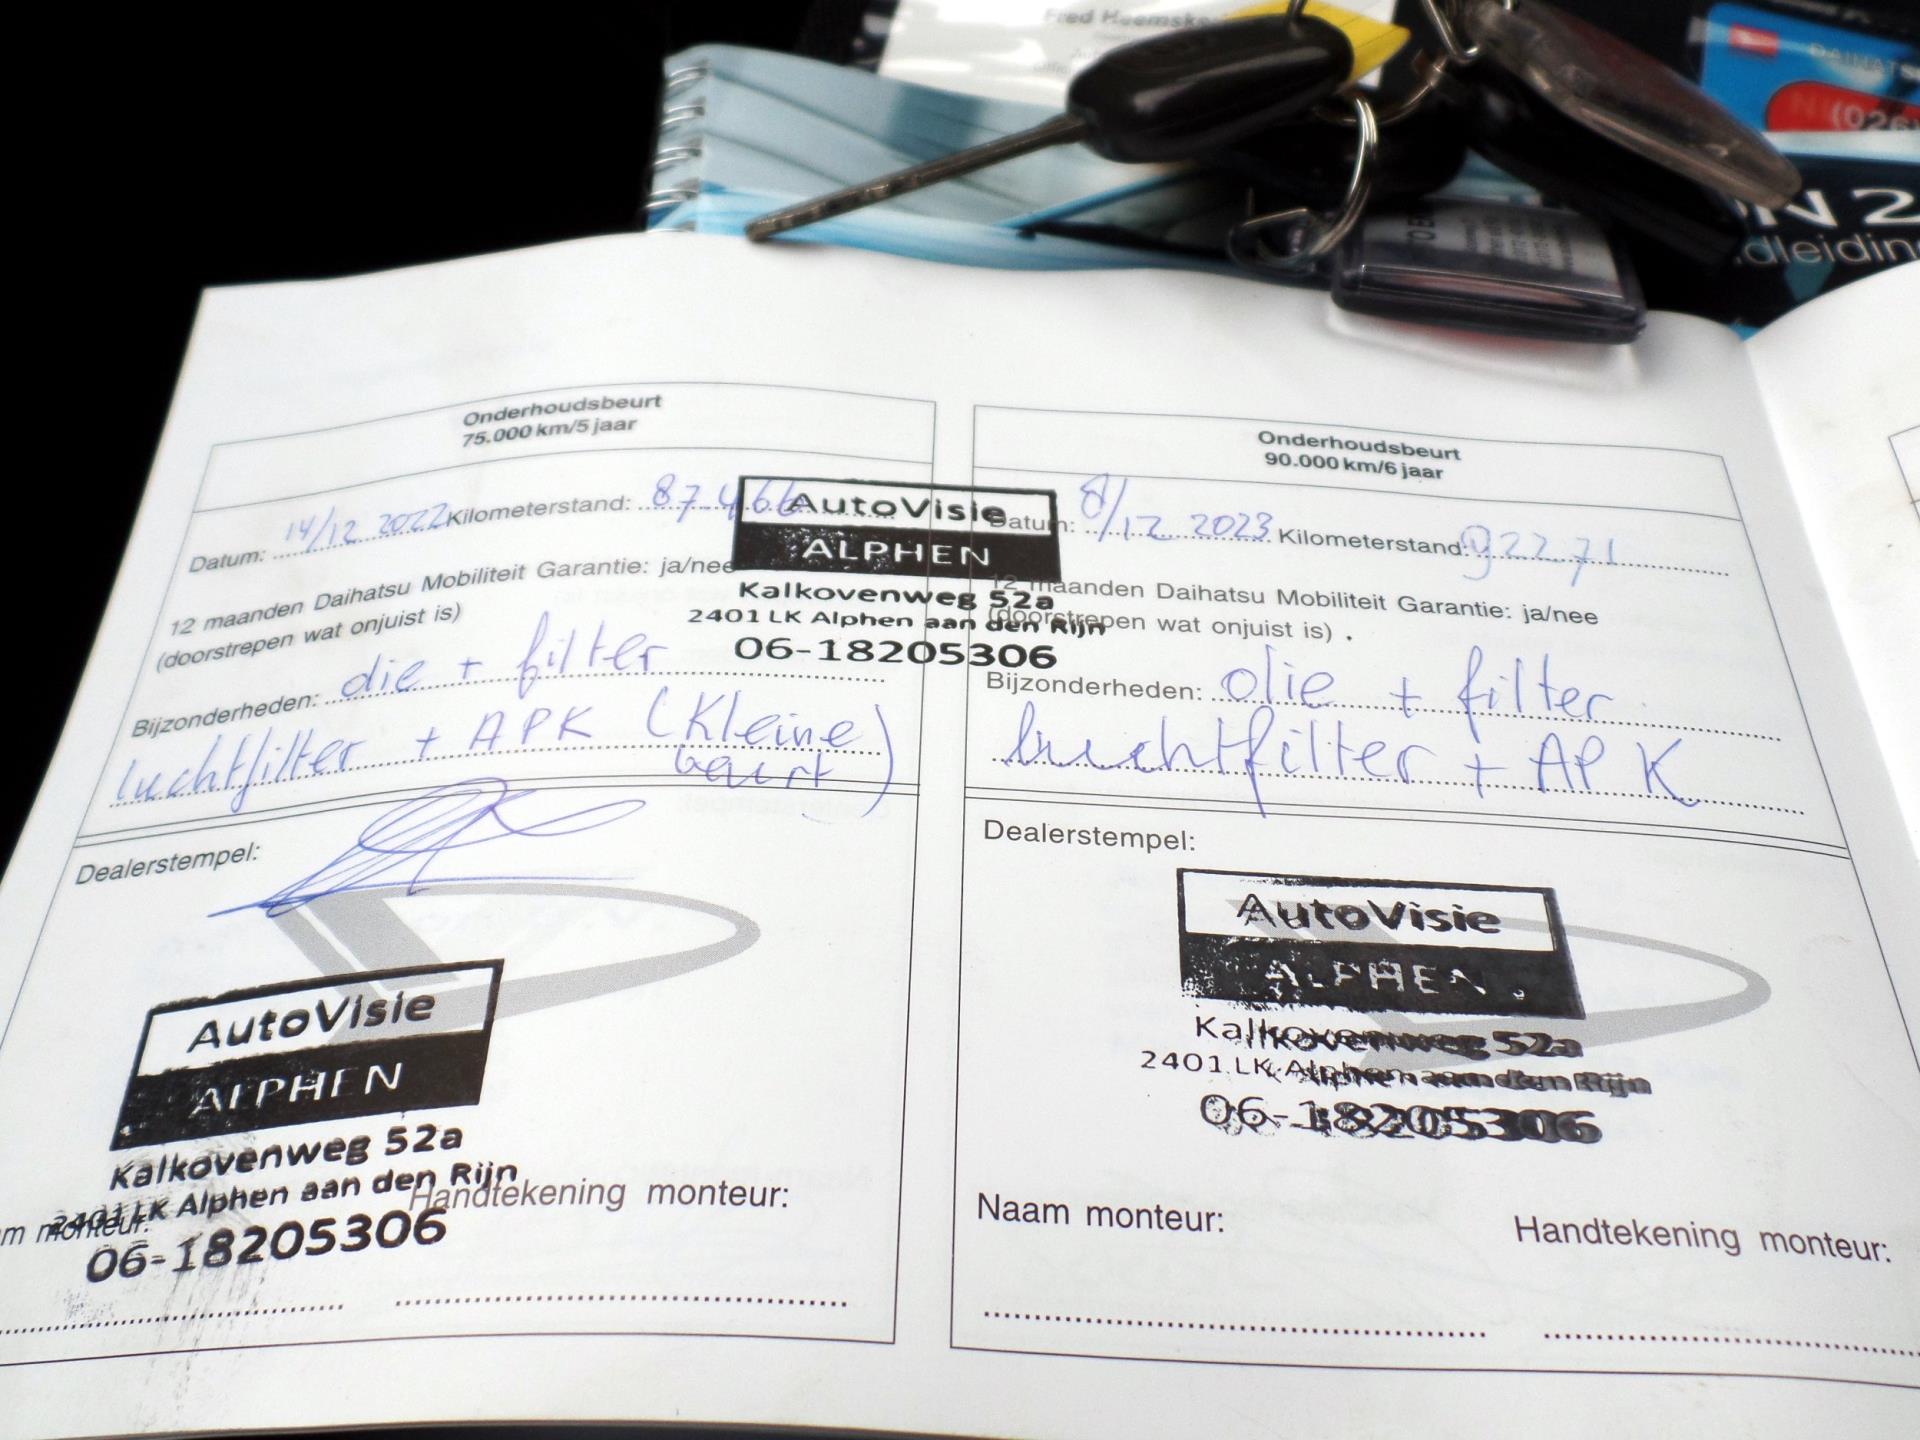 Fred Heemsk
DAIHATSU
(026)
ON 2
dleiding
Onderhoudsbeurt
75.000 km/5 jaar
Datum: 14/12 2022 Kilometerstand: 87.466
12 maanden Daihatsu Mobiliteit Garantie: ja/nee
(doorstrepen wat onjuist is)
Bijzonderheden: olie + filter
luchtfilter + APK (Kleine
beurt)
Dealerstempel:
AutoVisie
ALPHEN
Kalkovenweg 52a
2401 LK Alphen aan den Rijn
06-18205306
am monteur:
Handtekening monteur:
AutoVisie
ALPHEN
Kalkovenweg 52a
2401 LK Alphen aan den Rijn
06-18205306
Onderhoudsbeurt
90.000 km/6 jaar
Datum: 8/12 2023 Kilometerstand: 92271
12 maanden Daihatsu Mobiliteit Garantie: ja/nee
(doorstrepen wat onjuist is) .
Bijzonderheden: olie + filter
luchtfilter + APK
Dealerstempel:
AutoVisie
ALPHEN
Kalkovenweg 52a
2401 LK Alphen aan den Rijn
06-18205306
Naam monteur:
Handtekening monteur: